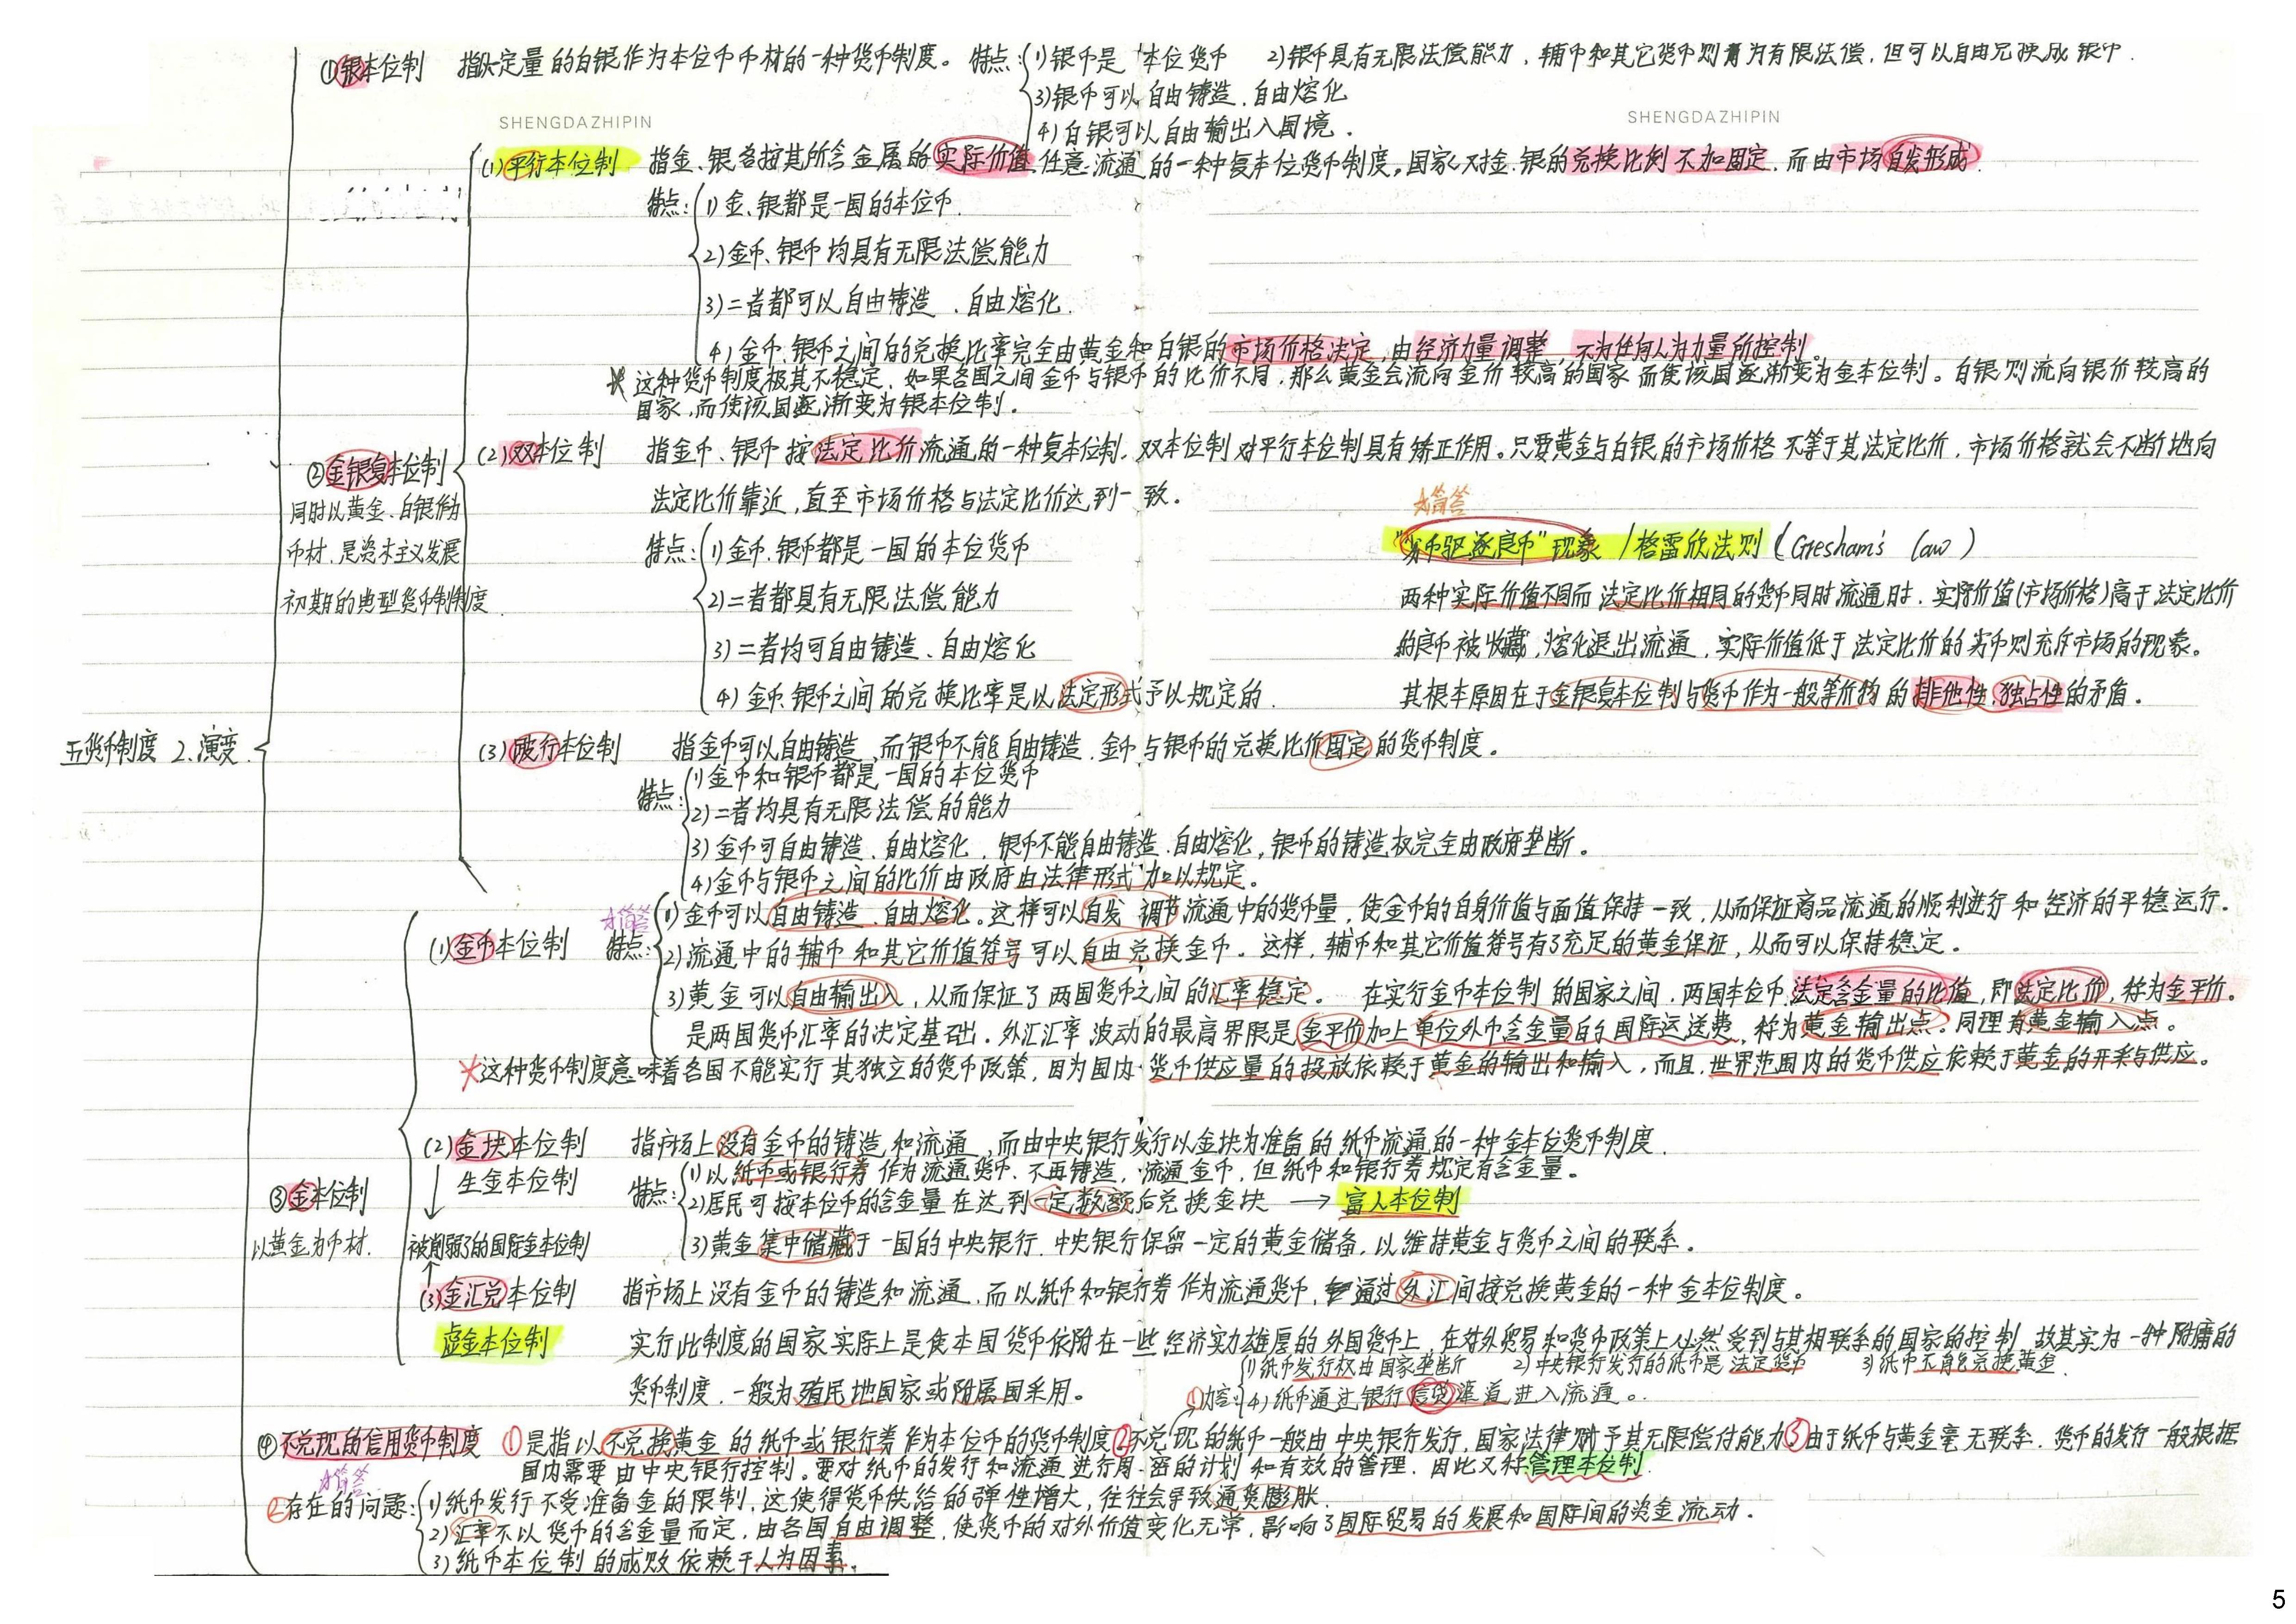 ①银本位制 指以定量的白银作为本位币币材的一种货币制度。特点: 1)银币是 本位货币 2)银币具有无限法偿能力,辅币和其它货币则为有限法偿,但可以自由兑换成银币.
3)银币可以自由铸造、自由熔化
SHENGDAZHIPIN
SHENGDAZHIPIN
4)白银可以自由输出入国境.
(1)平行本位制 指金、银各按其所含金属的实际价值任意流通的一种复本位货币制度,国家对金.银的兑换比例不加固定,而由市场自发形成.
特点: 1)金、银都是一国的本位币.
2)金币、银币均具有无限法偿能力
3)二者都可以自由铸造、自由熔化.
4)金币.银币之间的兑换比率完全由黄金和白银的市场价格决定,由经济力量调整 不为任何人为力量所控制。
这种货币制度极其不稳定.如果各国之间金币与银币的比价不同,那么黄金会流向金价较高的国家而使该国逐渐变为金本位制。白银则流向银价较高的
国家,而使该国逐渐变为银本位制.
②金银复本位制
同时以黄金、白银作为
币材,是资本主义发展
初期的典型货币制度.
(2)双本位制 指金币、银币按法定比价流通的一种复本位制.双本位制对平行本位制具有矫正作用。只要黄金与白银的市场价格不等于其法定比价,市场价格就会不断地向
法定比价靠近,直至市场价格与法定比价达到一致。
特点: 1)金币.银币都是一国的本位货币
2)二者都具有无限法偿能力
3)二者均可自由铸造、自由熔化
4)金币.银币之间的兑换比率是以法定形式予以规定的.
☆简答
"劣币驱逐良币"现象/格雷欣法则(Gresham's law)
两种实际价值不同而法定比价相同的货币同时流通时.实际价值(市场价格)高于法定比价
的良币被收藏,熔化退出流通,实际价值低于法定比价的劣币则充斥市场的现象。
其根本原因在于金银复本位制与货币作为一般等价物的排他性、独占性的矛盾.
五货币制度 2.演变
(3)跛行本位制 指金币可以自由铸造,而银币不能自由铸造.金币与银币的兑换比价固定的货币制度。
特点: 1)金币和银币都是一国的本位货币
2)二者均具有无限法偿的能力
3)金币可自由铸造、自由熔化,银币不能自由铸造.自由熔化,银币的铸造权完全由政府垄断。
4)金币与银币之间的比价由政府由法律形式加以规定。
(1)金币本位制
☆简答
特点: 1)金币可以自由铸造、自由熔化。这样可以自发调节流通中的货币量,使金币的自身价值与面值保持一致,从而保证商品流通的顺利进行和经济的平稳运行.
2)流通中的辅币和其它价值符号可以自由兑换金币。这样,辅币和其它价值符号有了充足的黄金保证,从而可以保持稳定。
3)黄金可以自由输出入,从而保证了两国货币之间的汇率稳定。 在实行金币本位制的国家之间.两国本位币法定含金量的比值,即法定比价,称为金平价。
是两国货币汇率的决定基础.外汇汇率波动的最高界限是金平价加上单位外币含金量的国际运送费,称为黄金输出点。同理有黄金输入点。
这种货币制度意味着各国不能实行其独立的货币政策,因为国内货币供应量的投放依赖于黄金的输出和输入,而且,世界范围内的货币供应依赖于黄金的开采与供应。
③金本位制
以黄金为币材.
(2)金块本位制 指市场上没有金币的铸造和流通,而由中央银行发行以金块为准备的纸币流通的一种金本位货币制度.
生金本位制
特点: 1)以纸币或银行券作为流通货币.不再铸造,流通金币,但纸币和银行券规定有含金量。
2)居民可按本位币的含金量在达到一定数额后兑换金块 → 富人本位制
3)黄金集中储藏于一国的中央银行.中央银行保留一定的黄金储备,以维持黄金与货币之间的联系。
被削弱了的国际金本位制
(3)金汇兑本位制 指市场上没有金币的铸造和流通,而以纸币和银行券作为流通货币,通过外汇间接兑换黄金的一种金本位制度。
虚金本位制 实行此制度的国家实际上是使本国货币依附在一些经济实力雄厚的外国货币上,在对外贸易和货币政策上必然受到与其相联系的国家的控制,故其实为一种附庸的
货币制度.一般为殖民地国家或附属国采用。
①内容: 1)纸币发行权由国家垄断 2)中央银行发行的纸币是法定货币 3)纸币不能兑换黄金.
4)纸币通过银行信贷渠道进入流通。
④不兑现的信用货币制度 ①是指以不兑换黄金的纸币或银行券作为本位币的货币制度②不兑现的纸币一般由中央银行发行,国家法律赋予其无限偿付能力③由于纸币与黄金毫无联系.货币的发行一般根据
国内需要由中央银行控制。要对纸币的发行和流通进行周密的计划和有效的管理.因此又称管理本位制.
☆简答
②存在的问题: 1)纸币发行不受准备金的限制,这使得货币供给的弹性增大,往往会导致通货膨胀.
2)汇率不以货币的含金量而定,由各国自由调整,使货币的对外价值变化无常,影响了国际贸易的发展和国际间的资金流动.
3)纸币本位制的成败依赖于人为因素。
5